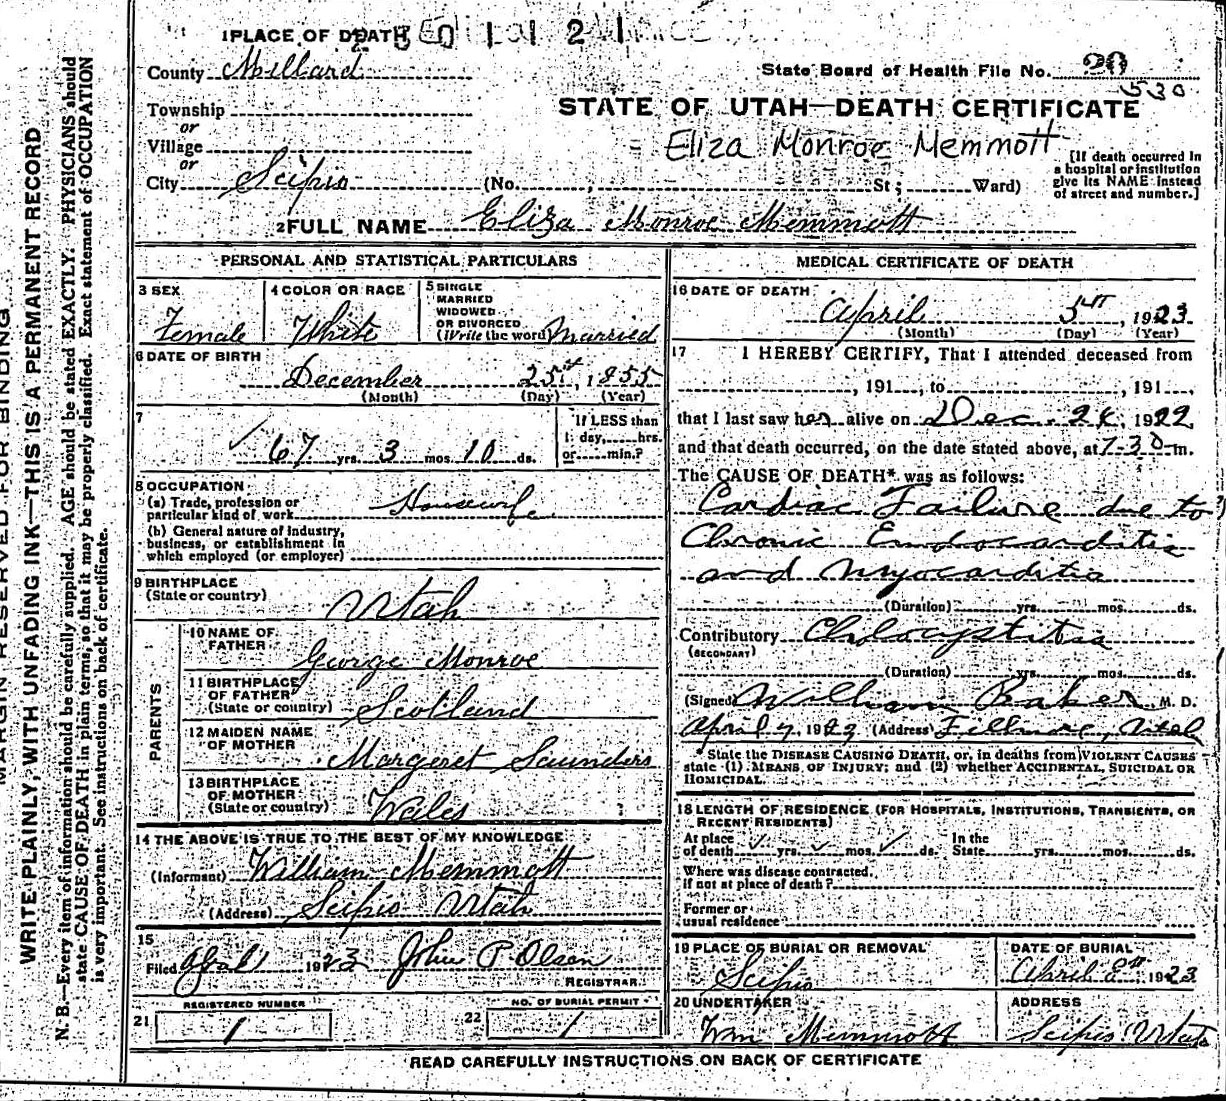 1 PLACE OF DEATH
County Millard
State Board of Health File No. 20
530
Township
or
Village
or
City Scipio
STATE OF UTAH—DEATH CERTIFICATE
Eliza Monroe Memmott
(No. , St; Ward)
[If death occurred in
a hospital or institution
give its NAME instead
of street and number.]
2 FULL NAME Eliza Monroe Memmott
PERSONAL AND STATISTICAL PARTICULARS
3 SEX
Female
4 COLOR OR RACE
White
5 SINGLE
MARRIED
WIDOWED
OR DIVORCED
(Write the word) Married
6 DATE OF BIRTH
December 25th, 1855
(Month) (Day) (Year)
7
67 yrs. 3 mos. 10 ds.
If LESS than
1 day, hrs.
or min.?
8 OCCUPATION
(a) Trade, profession or
particular kind of work Housewife
(b) General nature of industry,
business, or establishment in
which employed (or employer)
9 BIRTHPLACE
(State or country)
Utah
PARENTS
10 NAME OF
FATHER
George Monroe
11 BIRTHPLACE
OF FATHER
(State or country) Scotland
12 MAIDEN NAME
OF MOTHER
Margeret Saunders
13 BIRTHPLACE
OF MOTHER
(State or country) Wales
14 THE ABOVE IS TRUE TO THE BEST OF MY KNOWLEDGE
(Informant) William Memmott
(Address) Scipio Utah
15
Filed 1923 John P Olsen
REGISTRAR
REGISTERED NUMBER
21 1
NO. OF BURIAL PERMIT
22 1
MEDICAL CERTIFICATE OF DEATH
16 DATE OF DEATH
April 5th, 1923
(Month) (Day) (Year)
17 I HEREBY CERTIFY, That I attended deceased from
, 191 , to , 191 ,
that I last saw her alive on Dec. 24 1922
and that death occurred, on the date stated above, at 7-30 m.
The CAUSE OF DEATH* was as follows:
Cardiac Failure due to
Chronic Endocarditis
and Myocarditis
(Duration) yrs. mos. ds.
Contributory Cholocystitis
(SECONDARY)
(Duration) yrs. mos. ds.
(Signed) William Baker M. D.
April 7, 1923 (Address) Fillmore, Utah
State the DISEASE CAUSING DEATH, or, in deaths from VIOLENT CAUSES
state (1) MEANS OF INJURY; and (2) whether ACCIDENTAL, SUICIDAL OR
HOMICIDAL.
18 LENGTH OF RESIDENCE (FOR HOSPITALS, INSTITUTIONS, TRANSIENTS, OR
RECENT RESIDENTS)
At place
of death ✓ yrs. ✓ mos. ✓ ds. In the
State yrs. mos. ds.
Where was disease contracted,
if not at place of death?
Former or
usual residence
19 PLACE OF BURIAL OR REMOVAL
Scipio
DATE OF BURIAL
April 8th 1923
20 UNDERTAKER
Wm Memmott
ADDRESS
Scipio Utah
READ CAREFULLY INSTRUCTIONS ON BACK OF CERTIFICATE
MARGIN RESERVED FOR BINDING
WRITE PLAINLY WITH UNFADING INK—THIS IS A PERMANENT RECORD
N. B.—Every item of information should be carefully supplied. AGE should be stated EXACTLY. PHYSICIANS should
state CAUSE OF DEATH in plain terms, so that it may be properly classified. Exact statement of OCCUPATION
is very important. See instructions on back of certificate.